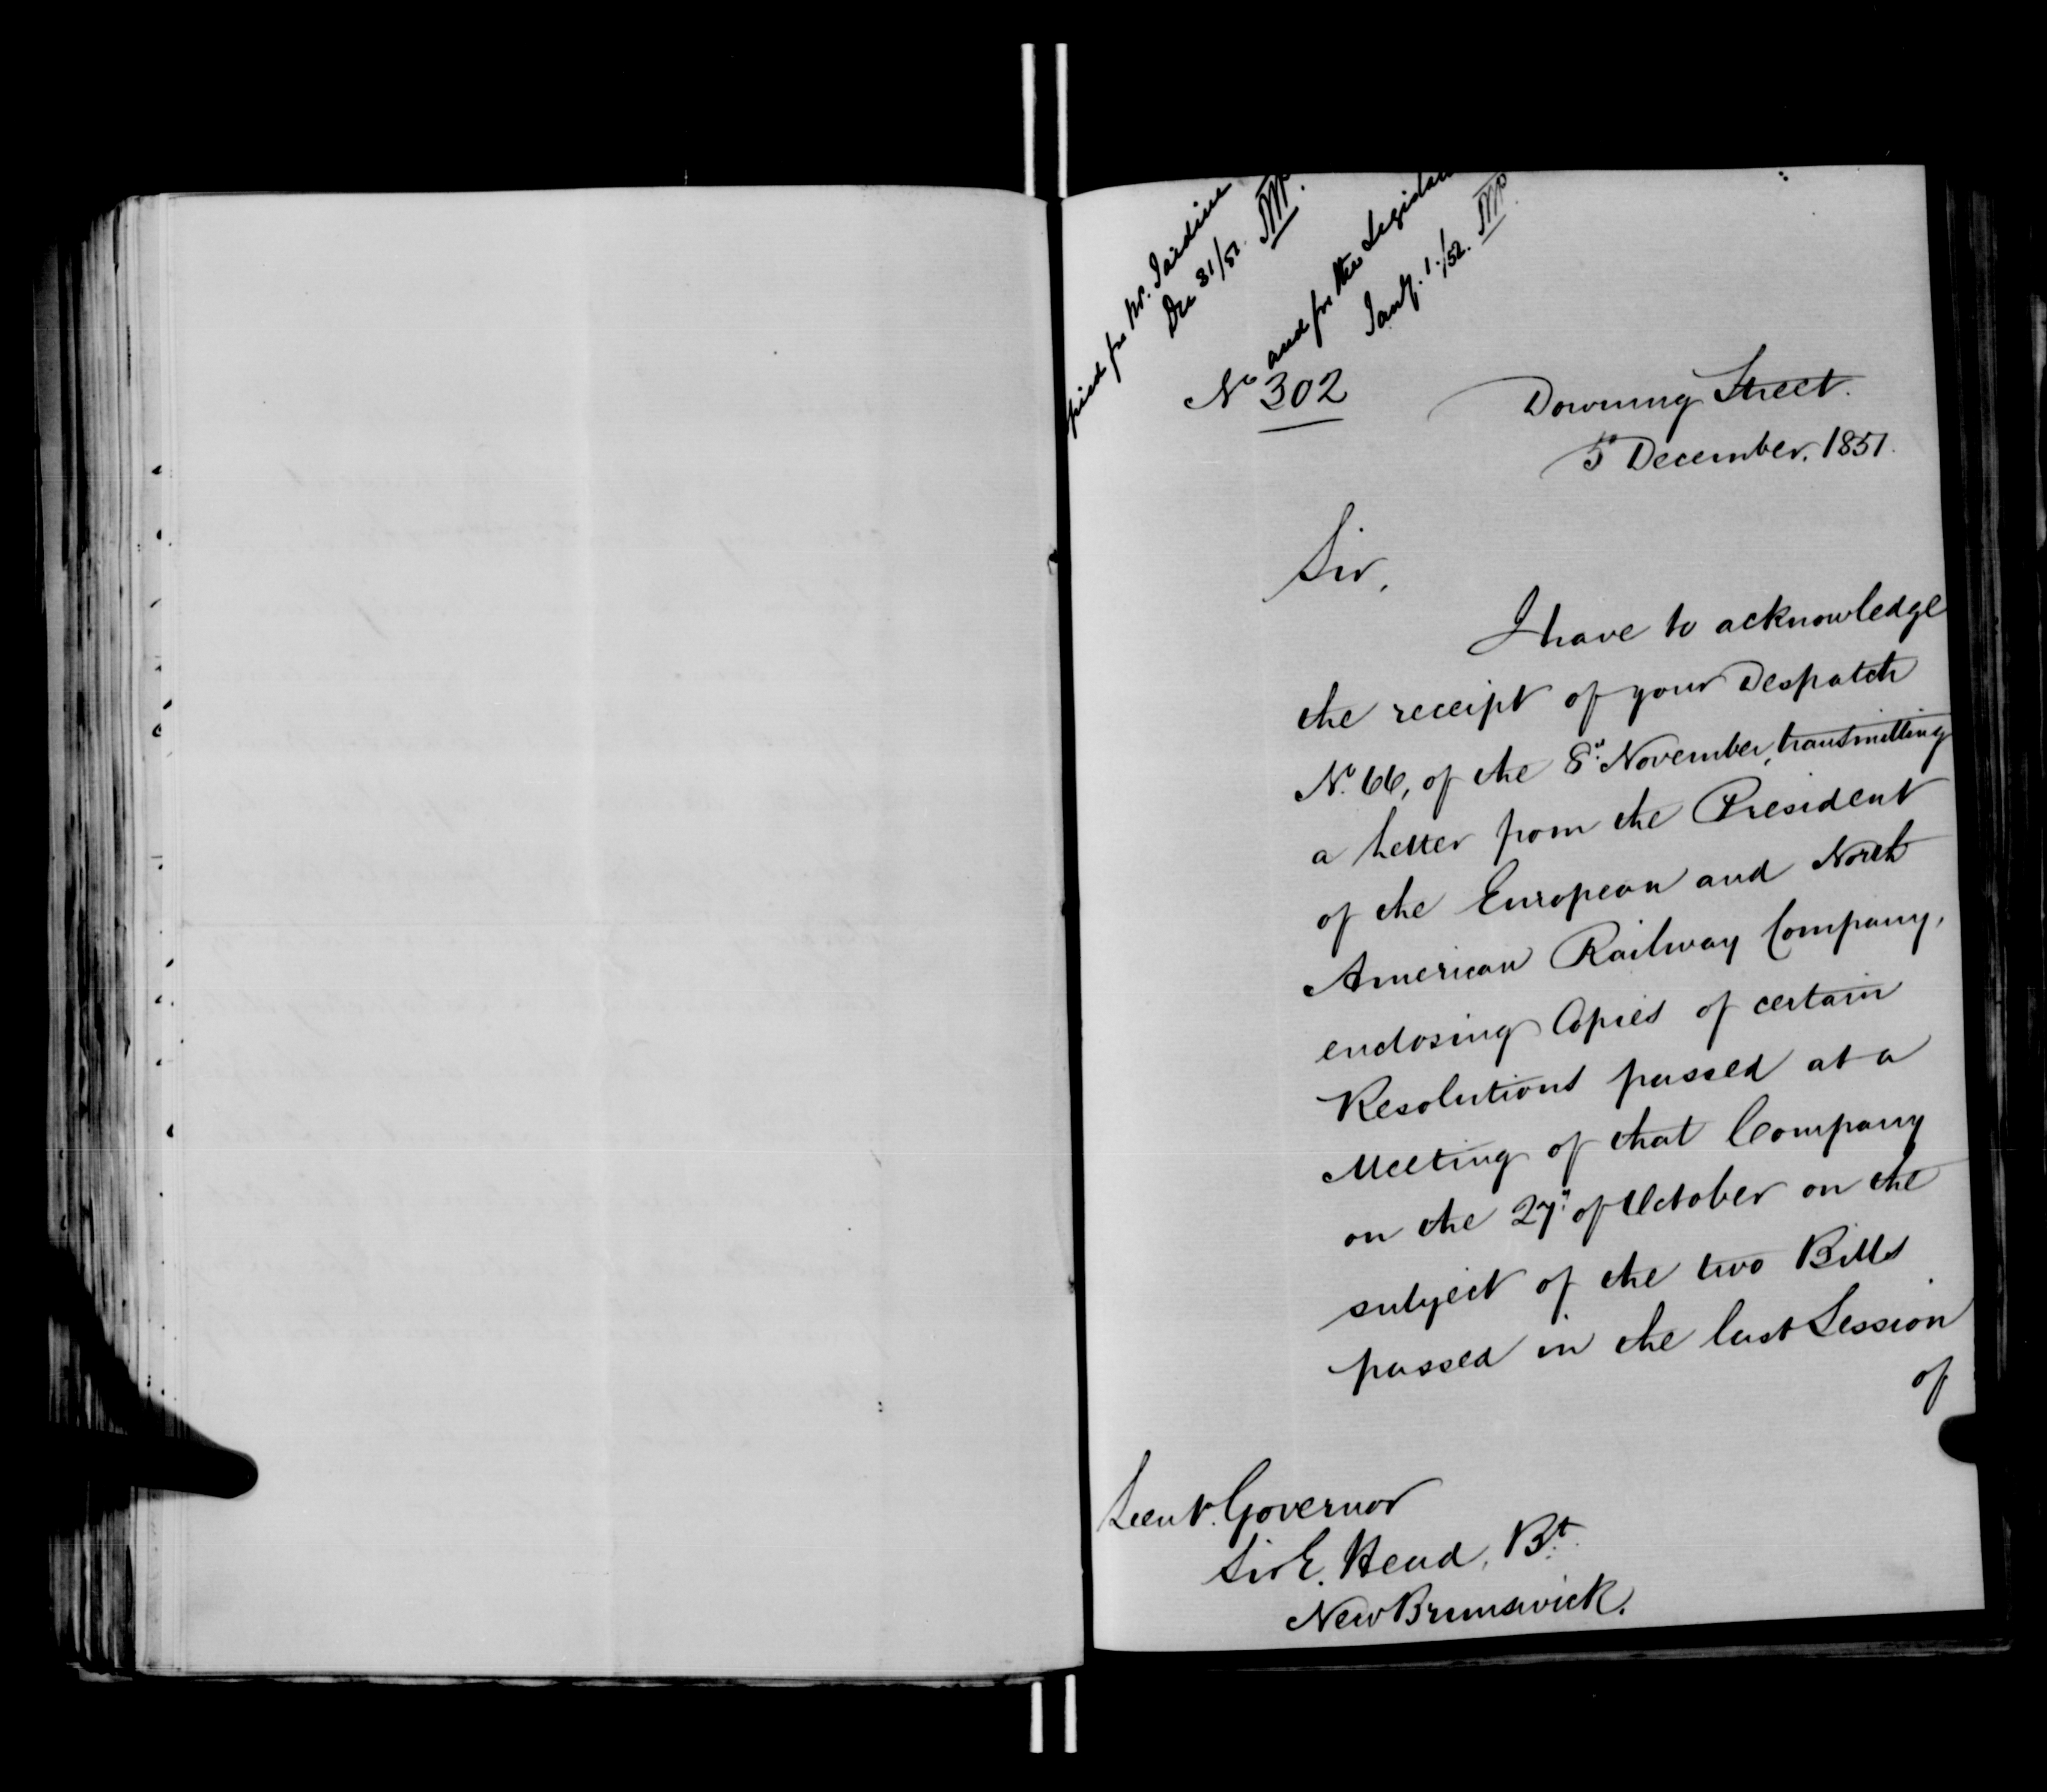 for Mr. Jardine
Dec 31/51.
and for the Legislat
Jany. 1./52.
No 302
Downing Street.
5th December, 1851.
Sir,
I have to acknowledge
the receipt of your Despatch
No. 66, of the 8th November, transmitting
a letter from the President
of the European and North
American Railway Company,
enclosing Copies of certain
Resolutions passed at a
Meeting of that Company
on the 27th of October on the
subject of the two Bills
passed in the last Session
of
Lieut. Governor
Sir E. Head, Bt.
New Brunswick.